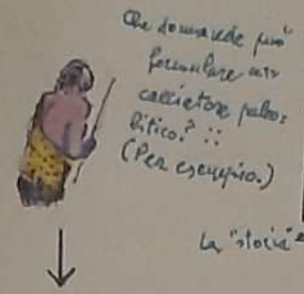 Che domande può
formulare un
cacciatore paleo=
litico? ::
(Per esempio.)
La "storia" è